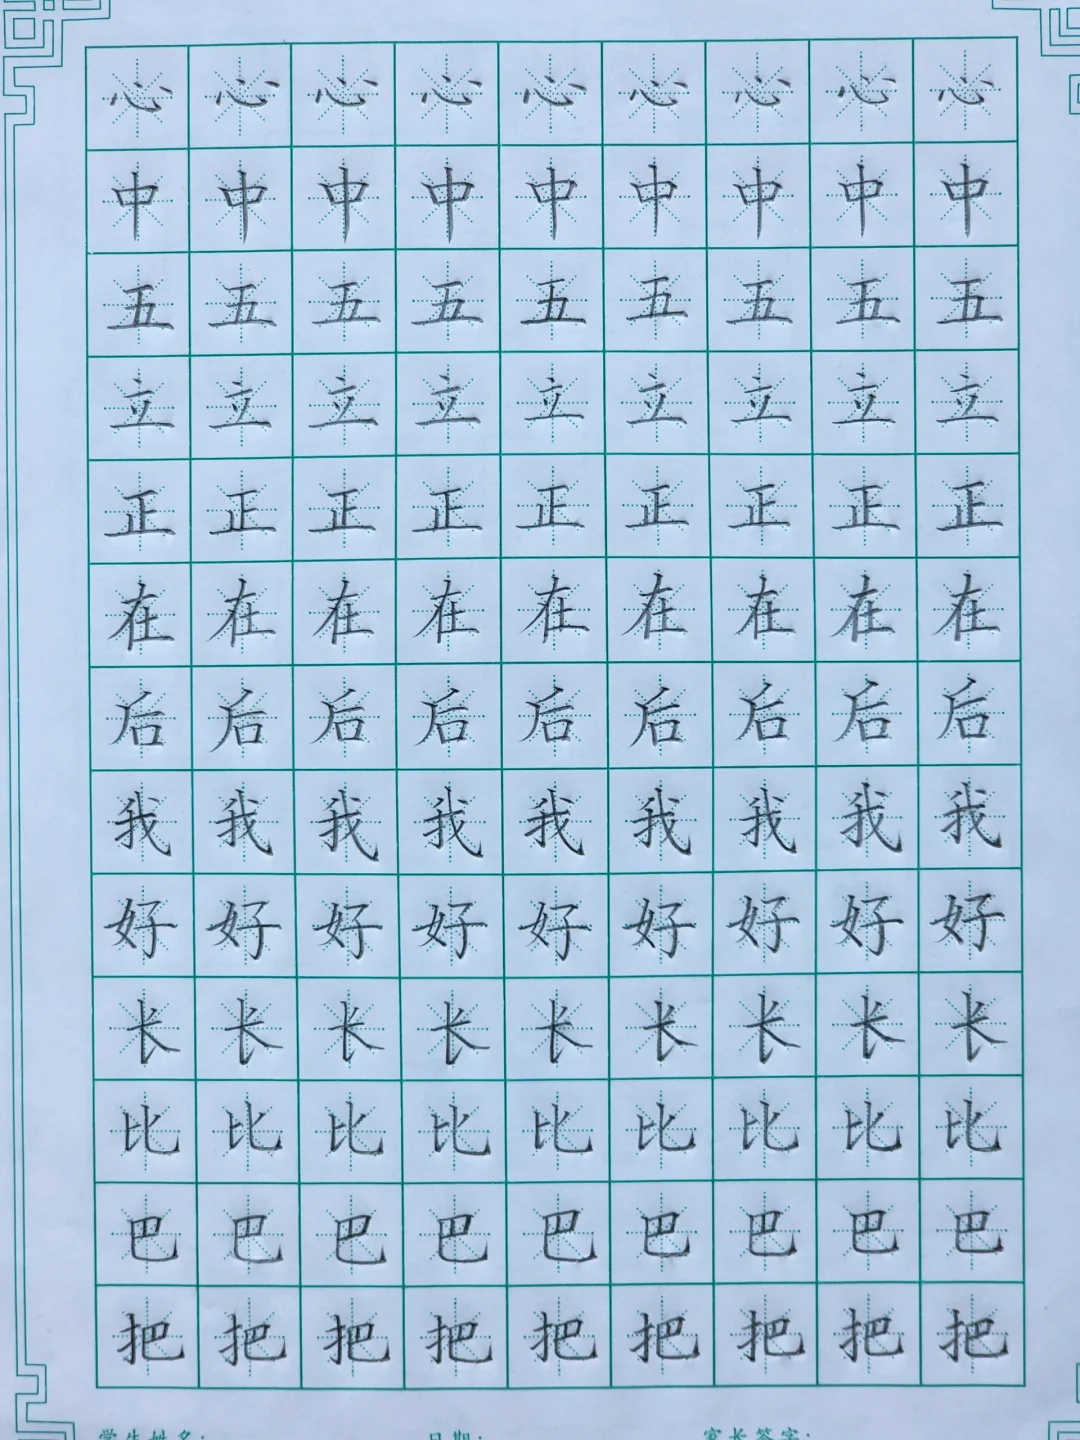 心心心心心心心心心
中中中中中中中中中
五五五五五五五五五
立立立立立立立立立
正正正正正正正正正
在在在在在在在在在
后后后后后后后后后
我我我我我我我我我
好好好好好好好好好
长长长长长长长长长
比比比比比比比比比
巴巴巴巴巴巴巴巴巴
把把把把把把把把把
学生姓名： 日期： 家长签字：